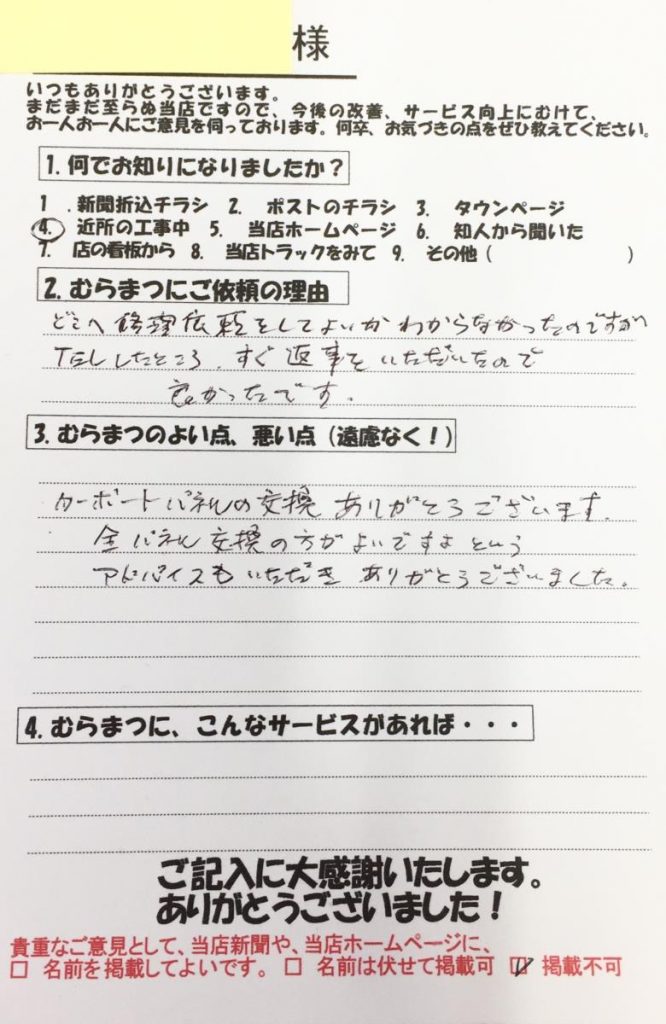 様
いつもありがとうございます。
まだまだ至らぬ当店ですので、今後の改善、サービス向上にむけて、
お一人お一人にご意見を伺っております。何卒、お気づきの点をぜひ教えてください。
1. 何でお知りになりましたか？
1 . 新聞折込チラシ 2. ポストのチラシ 3. タウンページ
4. 近所の工事中 5. 当店ホームページ 6. 知人から聞いた
7. 店の看板から 8. 当店トラックをみて 9. その他（ ）
2. むらまつにご依頼の理由
どこへ修理依頼をしてよいかわからなかったのですが
TELしたところ、すぐ返事をいただいたので
良かったです。
3. むらまつのよい点、悪い点（遠慮なく！）
カーポートパネルの交換ありがとうございます。
全パネル交換の方がよいですよという
アドバイスもいただきありがとうございました。
4. むらまつに、こんなサービスがあれば・・・
ご記入に大感謝いたします。
ありがとうございました！
貴重なご意見として、当店新聞や、当店ホームページに、
□ 名前を掲載してよいです。 □ 名前は伏せて掲載可 ☑ 掲載不可